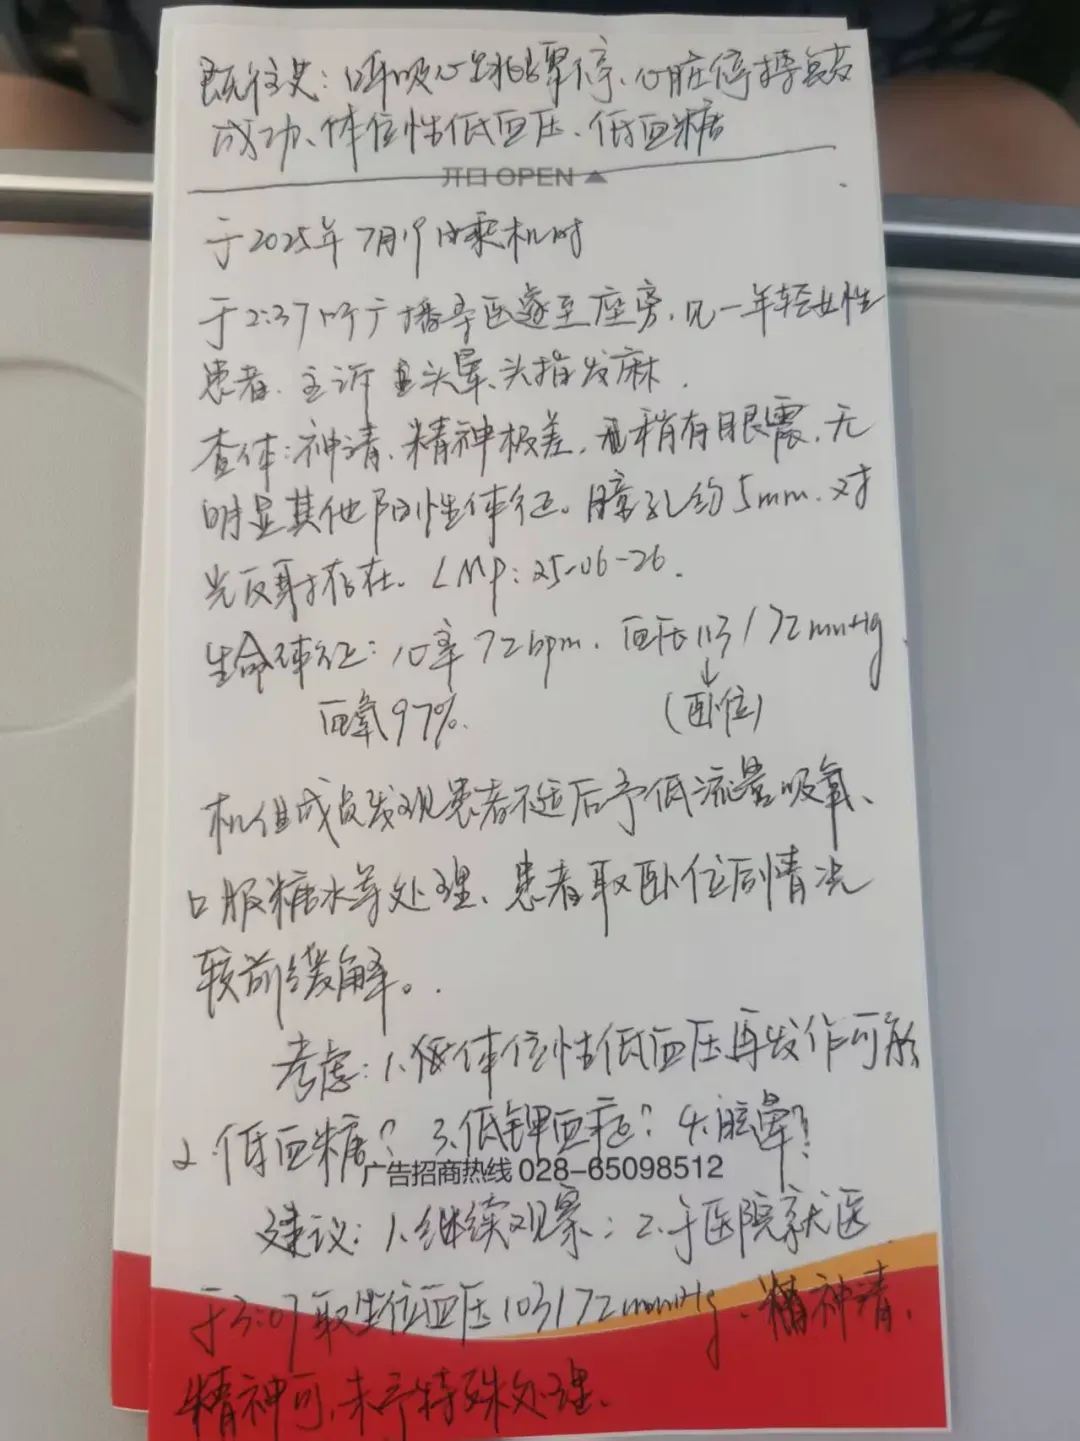 既往史：呼吸心跳骤停、心脏停搏复苏
成功、体位性低血压、低血糖
开口 OPEN
于2025年7月19日乘机时
于2:37听广播寻医遂至座旁，见一年轻女性
患者，主诉头晕、头指发麻．
查体：神清、精神极差，稍有眼震，无
明显其他阳性体征。瞳孔约5mm．对
光反射存在．LMP：25-06-26．
生命体征：心率72bpm．血压113/72mmHg．
血氧97%． （卧位）
机组成员发现患者不适后予低流量吸氧、
口服糖水等处理、患者取卧位后情况
较前缓解。
考虑：1.体位性低血压再发作可能
2.低血糖？ 3.低钾血症？ 4.脏晕？
广告招商热线 028-65098512
建议：1.继续观察；2.于医院就医
于3:07取坐位血压103/72mmHg、精神清，
精神可，未予特殊处理．